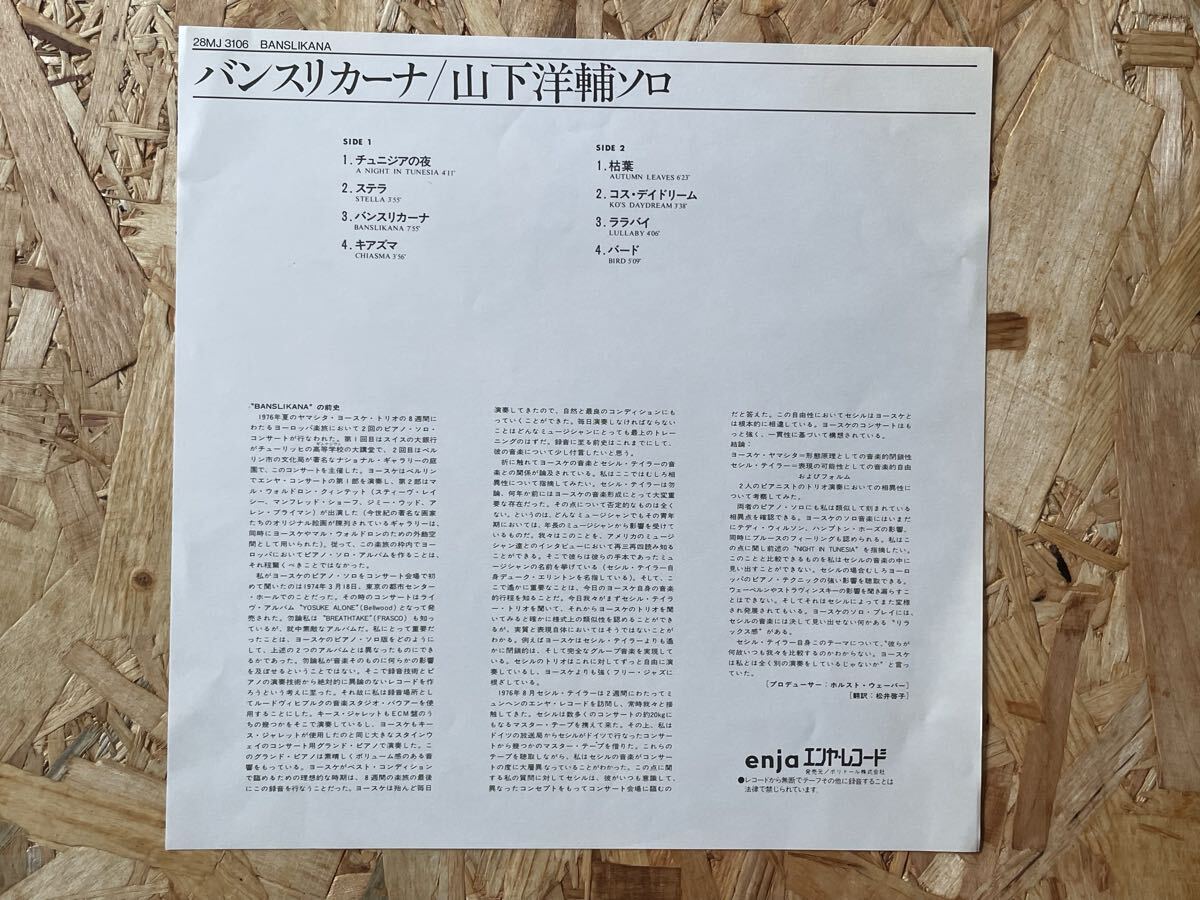 28MJ 3106 BANSLIKANA
バンスリカーナ/山下洋輔ソロ
SIDE 1
1. チュニジアの夜
A NIGHT IN TUNESIA 4'11"
2. ステラ
STELLA 3'55"
3. バンスリカーナ
BANSLIKANA 7'55"
4. キアズマ
CHIASMA 3'56"
SIDE 2
1. 枯葉
AUTUMN LEAVES 6'23"
2. コス・デイドリーム
KO'S DAYDREAM 3'38"
3. ララバイ
LULLABY 4'06"
4. バード
BIRD 5'09"
"BANSLIKANA"の前史
1976年夏のヤマシタ・ヨースケ・トリオの8週間に
わたるヨーロッパ楽旅において2回のピアノ・ソロ・
コンサートが行なわれた。第1回目はスイスの大銀行
がチューリッヒの高等学校の大講堂で、2回目はベル
リン市の文化局が著名なナショナル・ギャラリーの庭
園で、このコンサートを主催した。ヨースケはベルリン
でエンヤ・コンサートの第1部を演奏し、第2部はマ
ル・ウォルドロン・クィンテット(スティーヴ・レイ
シー、マンフレッド・ショーフ、ジミー・ウッド、ア
レン・ブライマン)が出演した(今世紀の著名な画家
たちのオリジナル絵画が陳列されているギャラリーは、
同時にヨースケやマル・ウォルドロンのための外動空
間として用いられた)。従って、この楽旅の枠内でヨー
ロッパにおいてピアノ・ソロ・アルバムを作ることは、
それ程驚くべきことではなかった。
私がヨースケのピアノ・ソロをコンサート会場で初
めて聞いたのは1974年3月18日、東京の都市センター
・ホールでのことだった。その時のコンサートはライ
ヴ・アルバム"YOSUKE ALONE"(Bellwood)となって発
売された。勿論私は"BREATHTAKE"(FRASCO)も知っ
ているが、就中素敵なアルバムだ。私にとって重要だ
ったことは、ヨースケのピアノ・ソロ版をどのように
して、上述の2つのアルバムとは異なったものにでき
るかであった。勿論私が音楽そのものに何らかの影響
を及ぼせるということではない。そこで録音技術とピ
アノの演奏技術から絶対的に異論のないレコードを作
ろうという考えに至った。それ故に私は録音場所とし
てルードヴィヒブルクの音楽スタジオ・バウアーを使
用することにした。キース・ジャレットもECM盤のう
ちの幾つかをそこで演奏しているし、ヨースケもキー
ス・ジャレットが使用したのと同じ大きなスタインウ
ェイのコンサート用グランド・ピアノで演奏した。こ
のグランド・ピアノは素晴しくボリューム感のある音
響をもっている。ヨースケがベスト・コンディション
で臨めるための理想的な時期は、8週間の楽旅の最後
にこの録音を行なうことだった。ヨースケは殆んど毎日
演奏してきたので、自然と最良のコンディションにも
っていくことができた。毎日演奏しなければならない
ことはどんなミュージシャンにとっても最上のトレー
ニングのはずだ。録音に至る前史はこれまでにして、
彼の音楽について少し付言したいと思う。
折に触れてヨースケの音楽とセシル・テイラーの音
楽との関係が論及されている。私はここではむしろ相
異性について指摘してみたい。セシル・テイラーは勿
論、何年か前にはヨースケの音楽形成にとって大変重
要な存在だった。その点について否定的なものは全く
ない。というのは、どんなミュージシャンでもその青年
期においては、年長のミュージシャンから影響を受けて
いるものだ。我々はこのことを、アメリカのミュージ
シャン達とのインタビューにおいて再三再四読み知る
ことができる。そこで彼らは彼らの手本であったミュ
ージシャンの名前を挙げている(セシル・テイラー自
身デューク・エリントンを名指している)。そして、こ
こで遙かに重要なことは、今日のヨースケ自身の音楽
的行程を知ることだ。今日我々がまずセシル・テイラ
ー・トリオを聞いて、それからヨースケのトリオを聞
いてみると確かに様式上の類似性を認めることができ
るが、実質と表現自体においてはそうではないことが
わかる。例えばヨースケはセシル・テイラーよりも遙
かに閉鎖的は、そして完全なグループ音楽を実現して
いる。セシルのトリオはこれに対してずっと自由に演
奏しているし、ヨースケよりも強くフリー・ジャズに
根ざしている。
1976年8月セシル・テイラーは2週間にわたってミュ
ンヘンのエンヤ・レコードを訪問し、常時我々と接
触してきた。セシルは数多くのコンサートの約20kgに
もなるマスター・テープを携えて来た。その上、私は
ドイツの放送局からセシルがドイツで行なったコンサ
ートから幾つかのマスター・テープを借りた。これらの
テープを聴取しながら、私はセシルの音楽がコンサー
トの度に大層異なっていることがわかった。この点に関
する私の質問に対してセシルは、彼がいつも意識して、
異なったコンセプトをもってコンサート会場に臨むの
だと答えた。この自由性においてセシルはヨースケと
は根本的に相違している。ヨースケのコンサートはも
っと強く、一貫性に基づいて構想されている。
結論:
ヨースケ・ヤマシタ=形態原理としての音楽的閉鎖性
セシル・テイラー=表現の可能性としての音楽的自由
およびフォルム
2人のピアニストのトリオ演奏においての相異性に
ついて考察してみた。
両者のピアノ・ソロにも私は類似して刻まれている
相異点を確認できる。ヨースケのソロ音楽にはいまだ
にテディ・ウィルソン、ハンプトン・ホーズの影響、
同時にブルースのフィーリングも認められる。私はこ
の点に関し前述の"NIGHT IN TUNESIA"を指摘したい。
このことと比較できるものを私はセシルの音楽の中に
見い出すことができない。セシルの場合むしろヨーロ
ッパのピアノ・テクニックの強い影響を聴取できる。
ウェーベルンやストラヴィンスキーの影響を聞き漏らすこ
とはできない。そしてそれはセシルによってまた変様
され発展されてもいる。ヨースケのソロ・プレイには、
セシルの音楽には決して見い出せない何かがある"リラ
ックス感"がある。
セシル・テイラー自身このテーマについて、"彼らが
何故いつも我々を比較するのかわからない。ヨースケ
は私とは全く別の演奏をしているじゃないか"と言っ
ていた。
[プロデューサー:ホルスト・ウェーバー]
[翻訳:松井啓子]
enja エンヤ・レコード
発売元/ポリドール株式会社
●レコードから無断でテープその他に録音することは
法律で禁じられています.